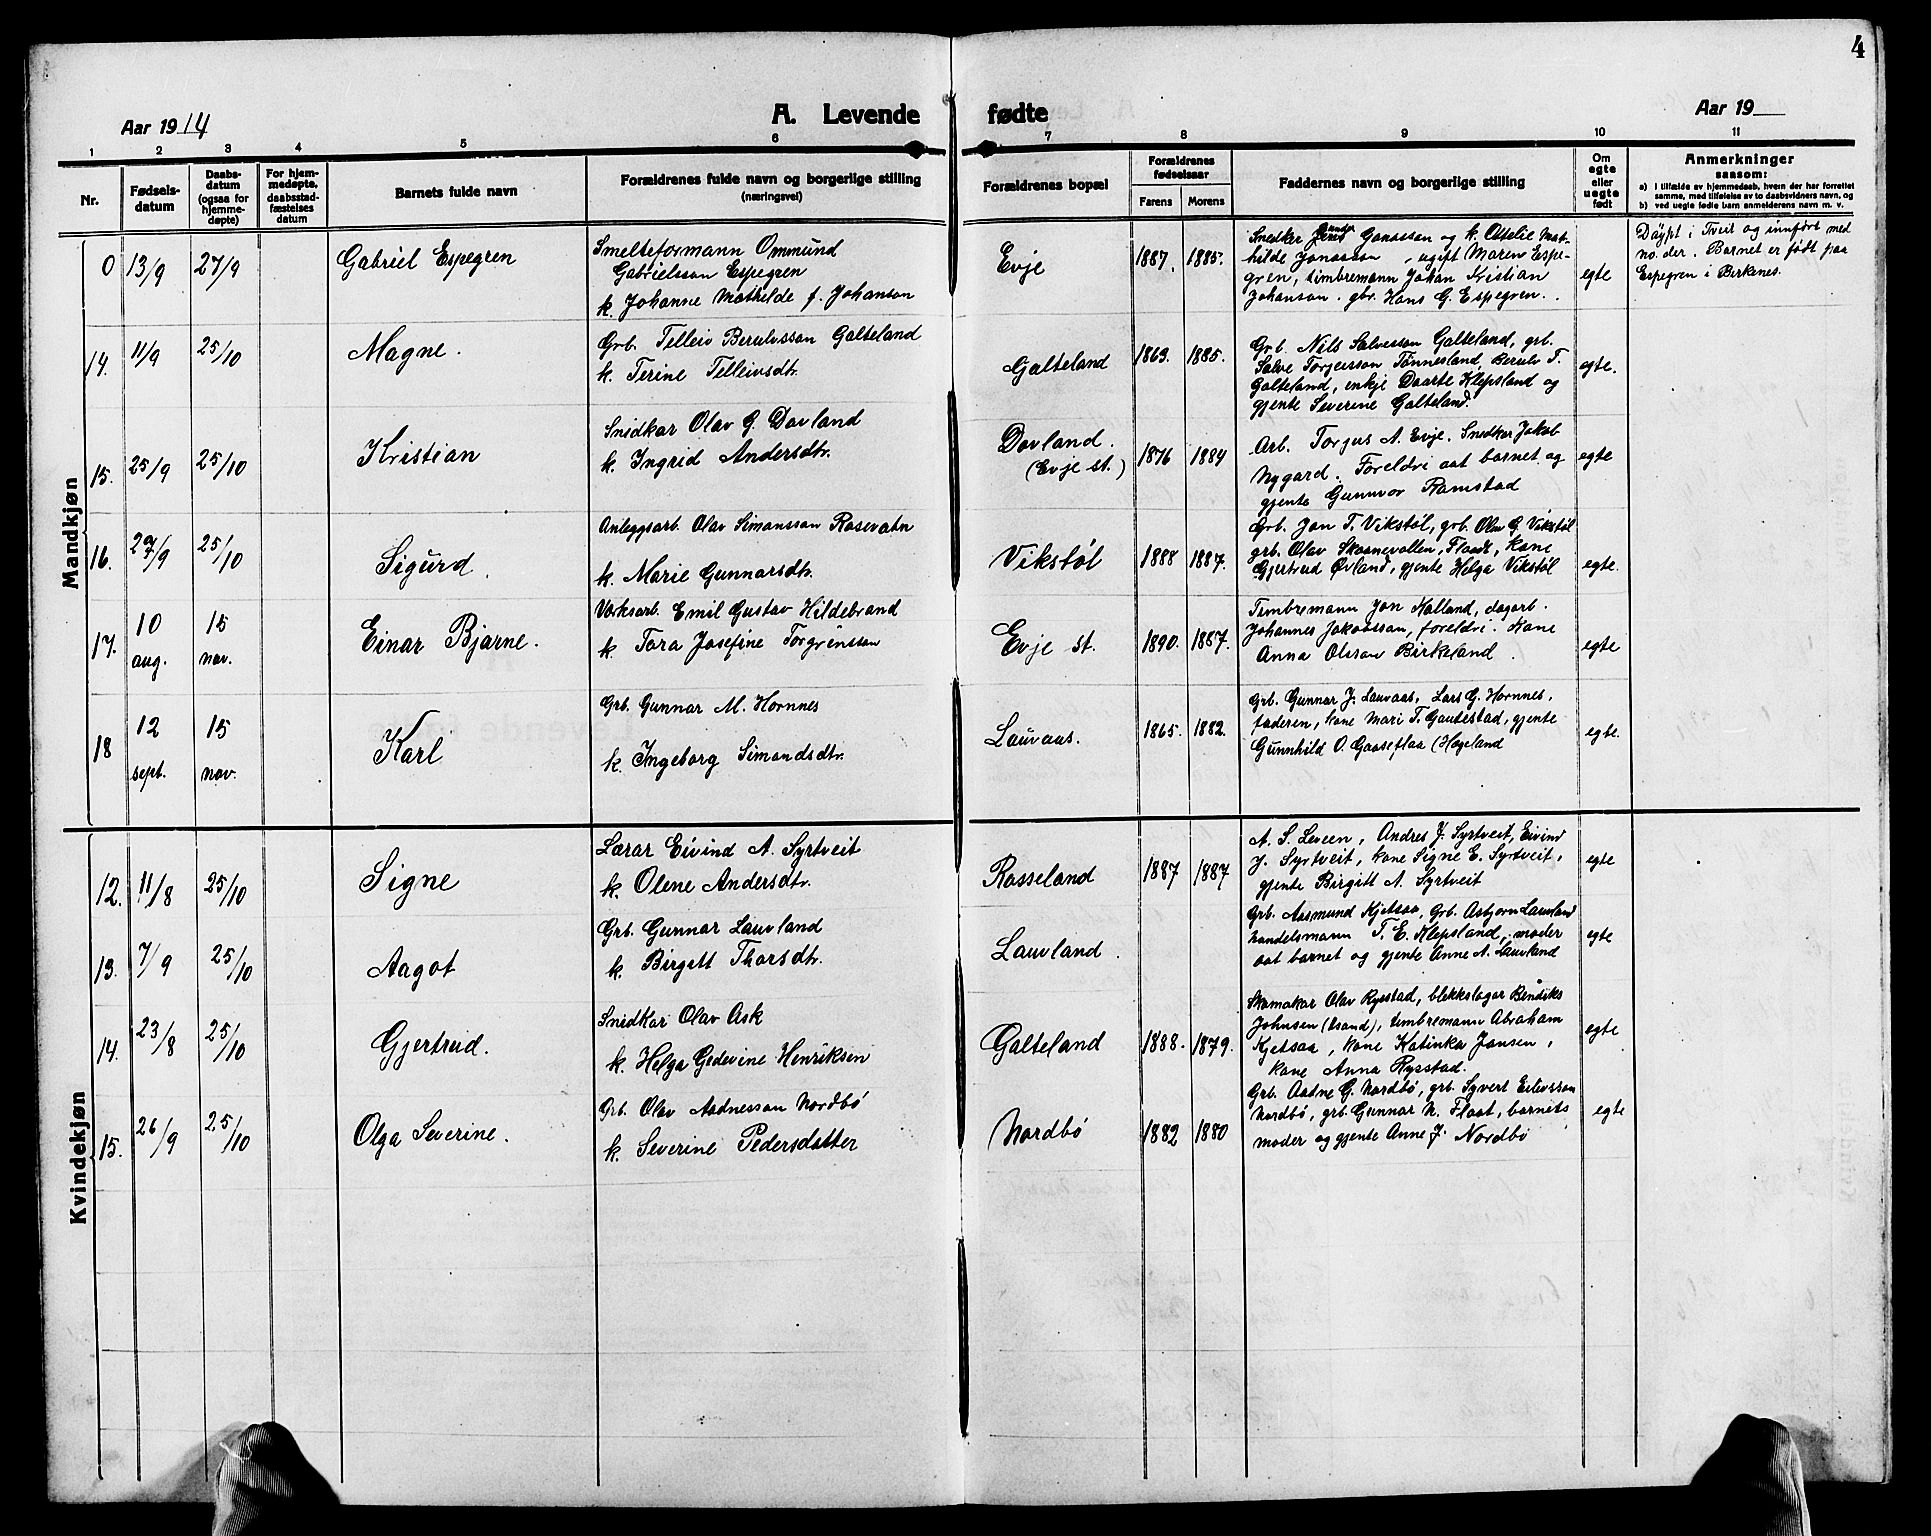 4
A. Levende fødte
Aar 1914
Aar 19
1 2 3 4 5 6 7 8 9 10 11
Nr.
Fødsels-
datum
Daabs-
datum
(ogsaa for
hjemme-
døpte)
For hjem-
medøpte,
daabsstad-
fæstelses
datum
Barnets fulde navn
Forældrenes fulde navn og borgerlige stilling
(næringsvei)
Forældrenes bopæl
Forældrenes
fødselsaar
Farens Morens
Faddernes navn og borgerlige stilling
Om
egte
eller
uegte
født
Anmerkninger
saasom:
a) i tilfælde av hjemmedaab, hvem der har forrettet
samme, med tilføielse av to daabsvidners navn, og
b) ved uegte fødte barn anmelderens navn m. v.
Mandkjøn
0 13/9 27/9 Gabriel Espegren
Smelteformann Ommund
Gabrielsson Espegren
k. Johanne Mathilde f. Johanson
Evje 1887. 1885.
Snedker Jonassen og k. Ottelie Mat-
hilde Jonassen, ugift Maren Espe-
gren, timbremann Johan Kristian
Johanson. gbr. Hans G. Espegren.
egte
Døypt i Tveit og innført med
no. der. Barnet er født paa
Espegren i Birkenes.
14. 11/9 25/10 Magne.
Grb. Telleiv Berulvsson Galteland
k. Terine Telleivsdtr.
Galteland 1863. 1885.
Grb. Nils Salvesson Galteland, grb.
Salve Torjusson Tønnesland, Berulv T.
Galteland, enkje Daarte Klepsland og
gjente Severine Galteland.
egte.
15. 25/9 25/10 Kristian
Snidkar Olav G. Dovland
k. Ingrid Andersdtr.
Dovland.
(Evje st.)
1876 1884
Arb. Torjus A. Evje. Snedker Jakob
Nygard. Foreldri aat barnet og
gjente Gunnvor Ramstad
egte
16. 27/9 25/10 Sigurd.
Anleggsarb. Olav Simonsson Rosevatn
k. Marie Gunnarsdtr.
Vikstøl 1888 1887.
Grb. Jon T. Vikstøl, grb. Olav G. Vikstøl
grb. Olav Skaanevollen, Flaat, kone
Gjertrud Øvland, gjente Helga Vikstøl
egte.
17. 10 aug. 15 nov. Einar Bjarne.
Verksarb. Emil Gustav Hildebrand
k. Tora Josefine Torgrensson
Evje st. 1890. 1887.
Timbremann Jon Halland, dagarb.
Johannes Jakobsson, foreldri. Kone
Anna Olsson Birkeland.
egte
18 12 sept. 15 nov. Karl
Grb. Gunnar M. Hornnes
k. Ingeborg Simondsdtr.
Lauvaas. 1865. 1882.
Grb. Gunnar J. Lauvaas, Lars G. Hornnes,
faderen, kone Mari T. Gautestad, gjente
Gunnhild O. Gaaseflaa (Hageland
egte.
Kvindekjøn
12. 11/8 25/10 Signe
Lærar Eivind A. Syrtveit
k. Olene Andersdtr.
Rosseland 1887 1887
A. S. Leveen, Andres J. Syrtveit, Eivind
J. Syrtveit, kone Signe E. Syrtveit,
gjente Birgitt A. Syrtveit
egte
13. 7/9 25/10 Aagot
Grb. Gunnar Lauvland
k. Birgitt Thorsdtr.
Lauvland.
Grb. Aasmund Kjetsaa, Grb. Asbjørn Lauvland
handelsmann T. E. Klepsland, moder
aat barnet og gjente Anne A. Lauvland
egte
14. 23/8 25/10 Gjertrud.
Snidkar Olav Ask
k. Helga Gedevine Henriksen
Galteland 1888. 1879.
Skomakar Olav Rysstad, blekkslagar Bendiks
Johnsen, timbremann Abraham
Kjetsaa, kone Katinka Jansen,
kone Anna Rysstad.
egte
15. 26/9 25/10 Olga Severine.
Grb. Olav Aadnesson Nordbø
k. Severine Pedersdatter
Nordbø 1882 1880
Grb. Aadne G. Nordbø, grb. Syvert Eilivsson
Nordbø, grb. Gunnar N. Flaat, barnets
moder og gjente Anne J. Nordbø
egte